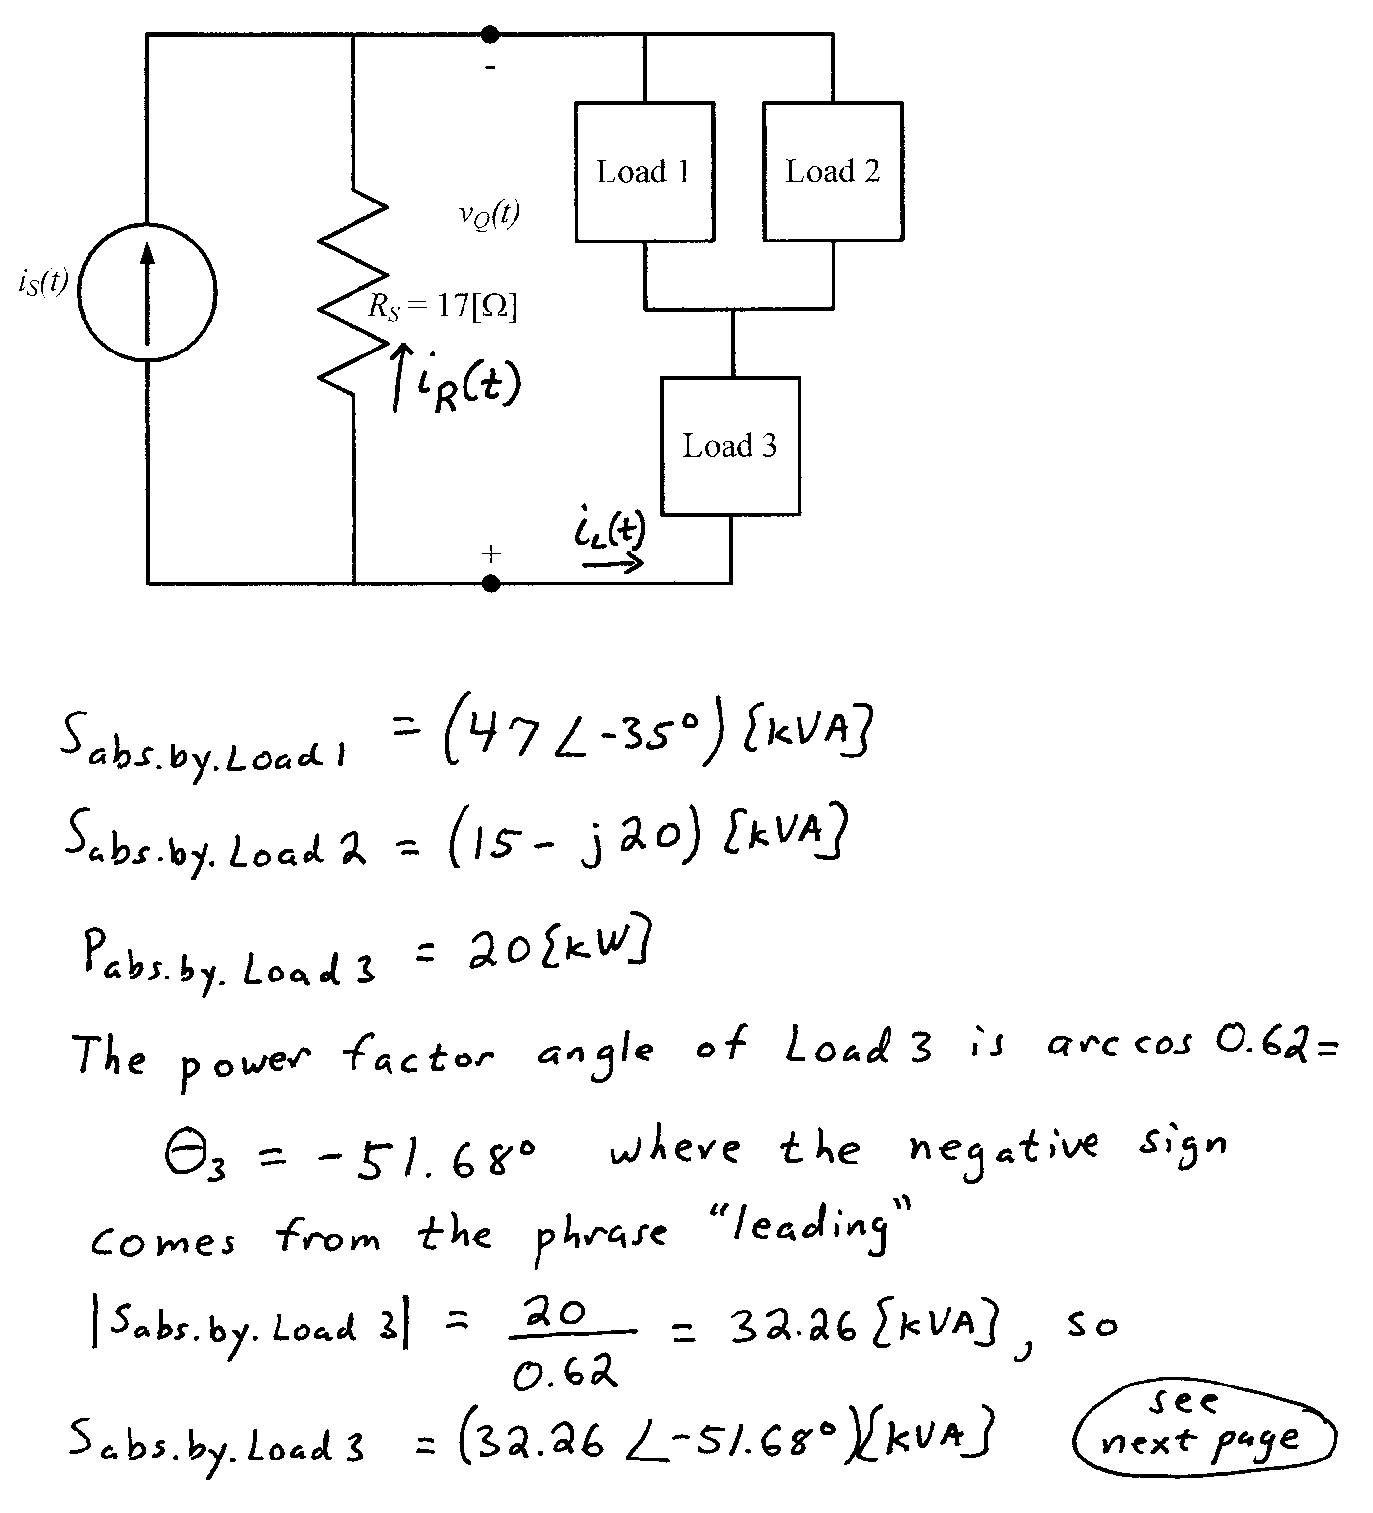 -
Load 1
Load 2
vQ(t)
iS(t)
RS = 17[Ω]
iR(t)
Load 3
iL(t)
+
Sabs.by.Load 1 = (47∠-35°) [kVA]
Sabs.by.Load 2 = (15 - j20) [kVA]
Pabs.by.Load 3 = 20 [kW]
The power factor angle of Load 3 is arccos 0.62 =
θ3 = -51.68° where the negative sign
comes from the phrase "leading"
|Sabs.by.Load 3| = 20/0.62 = 32.26 [kVA], so
Sabs.by.Load 3 = (32.26 ∠-51.68°)[kVA]
see
next page